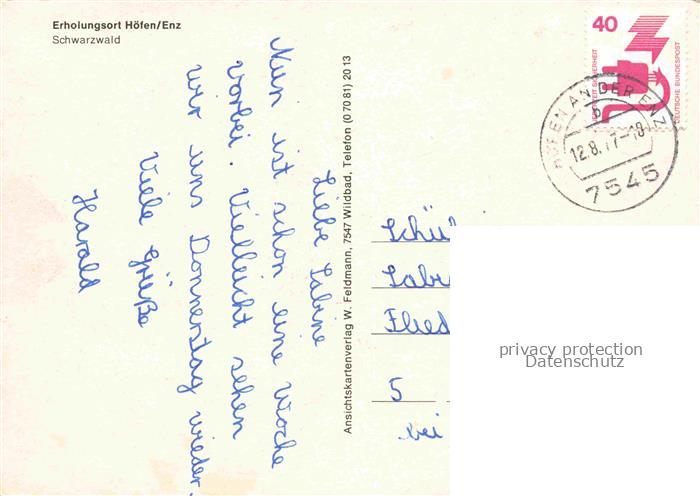 Erholungsort Höfen/Enz
Schwarzwald
Liebe Sabine
Nun ist schon eine Woche
vorbei. Vielleicht sehen
wir uns Donnerstag wieder.
Viele Grüße
Harald
Ansichtskartenverlag W. Feldmann, 7547 Wildbad, Telefon (0 70 81) 20 13
40
DEUTSCHE BUNDESPOST
HÖFEN AN DER ENZ
b
12.8.77-18
7545
Schü
Sabr
Flied
5
bei
privacy protection
Datenschutz